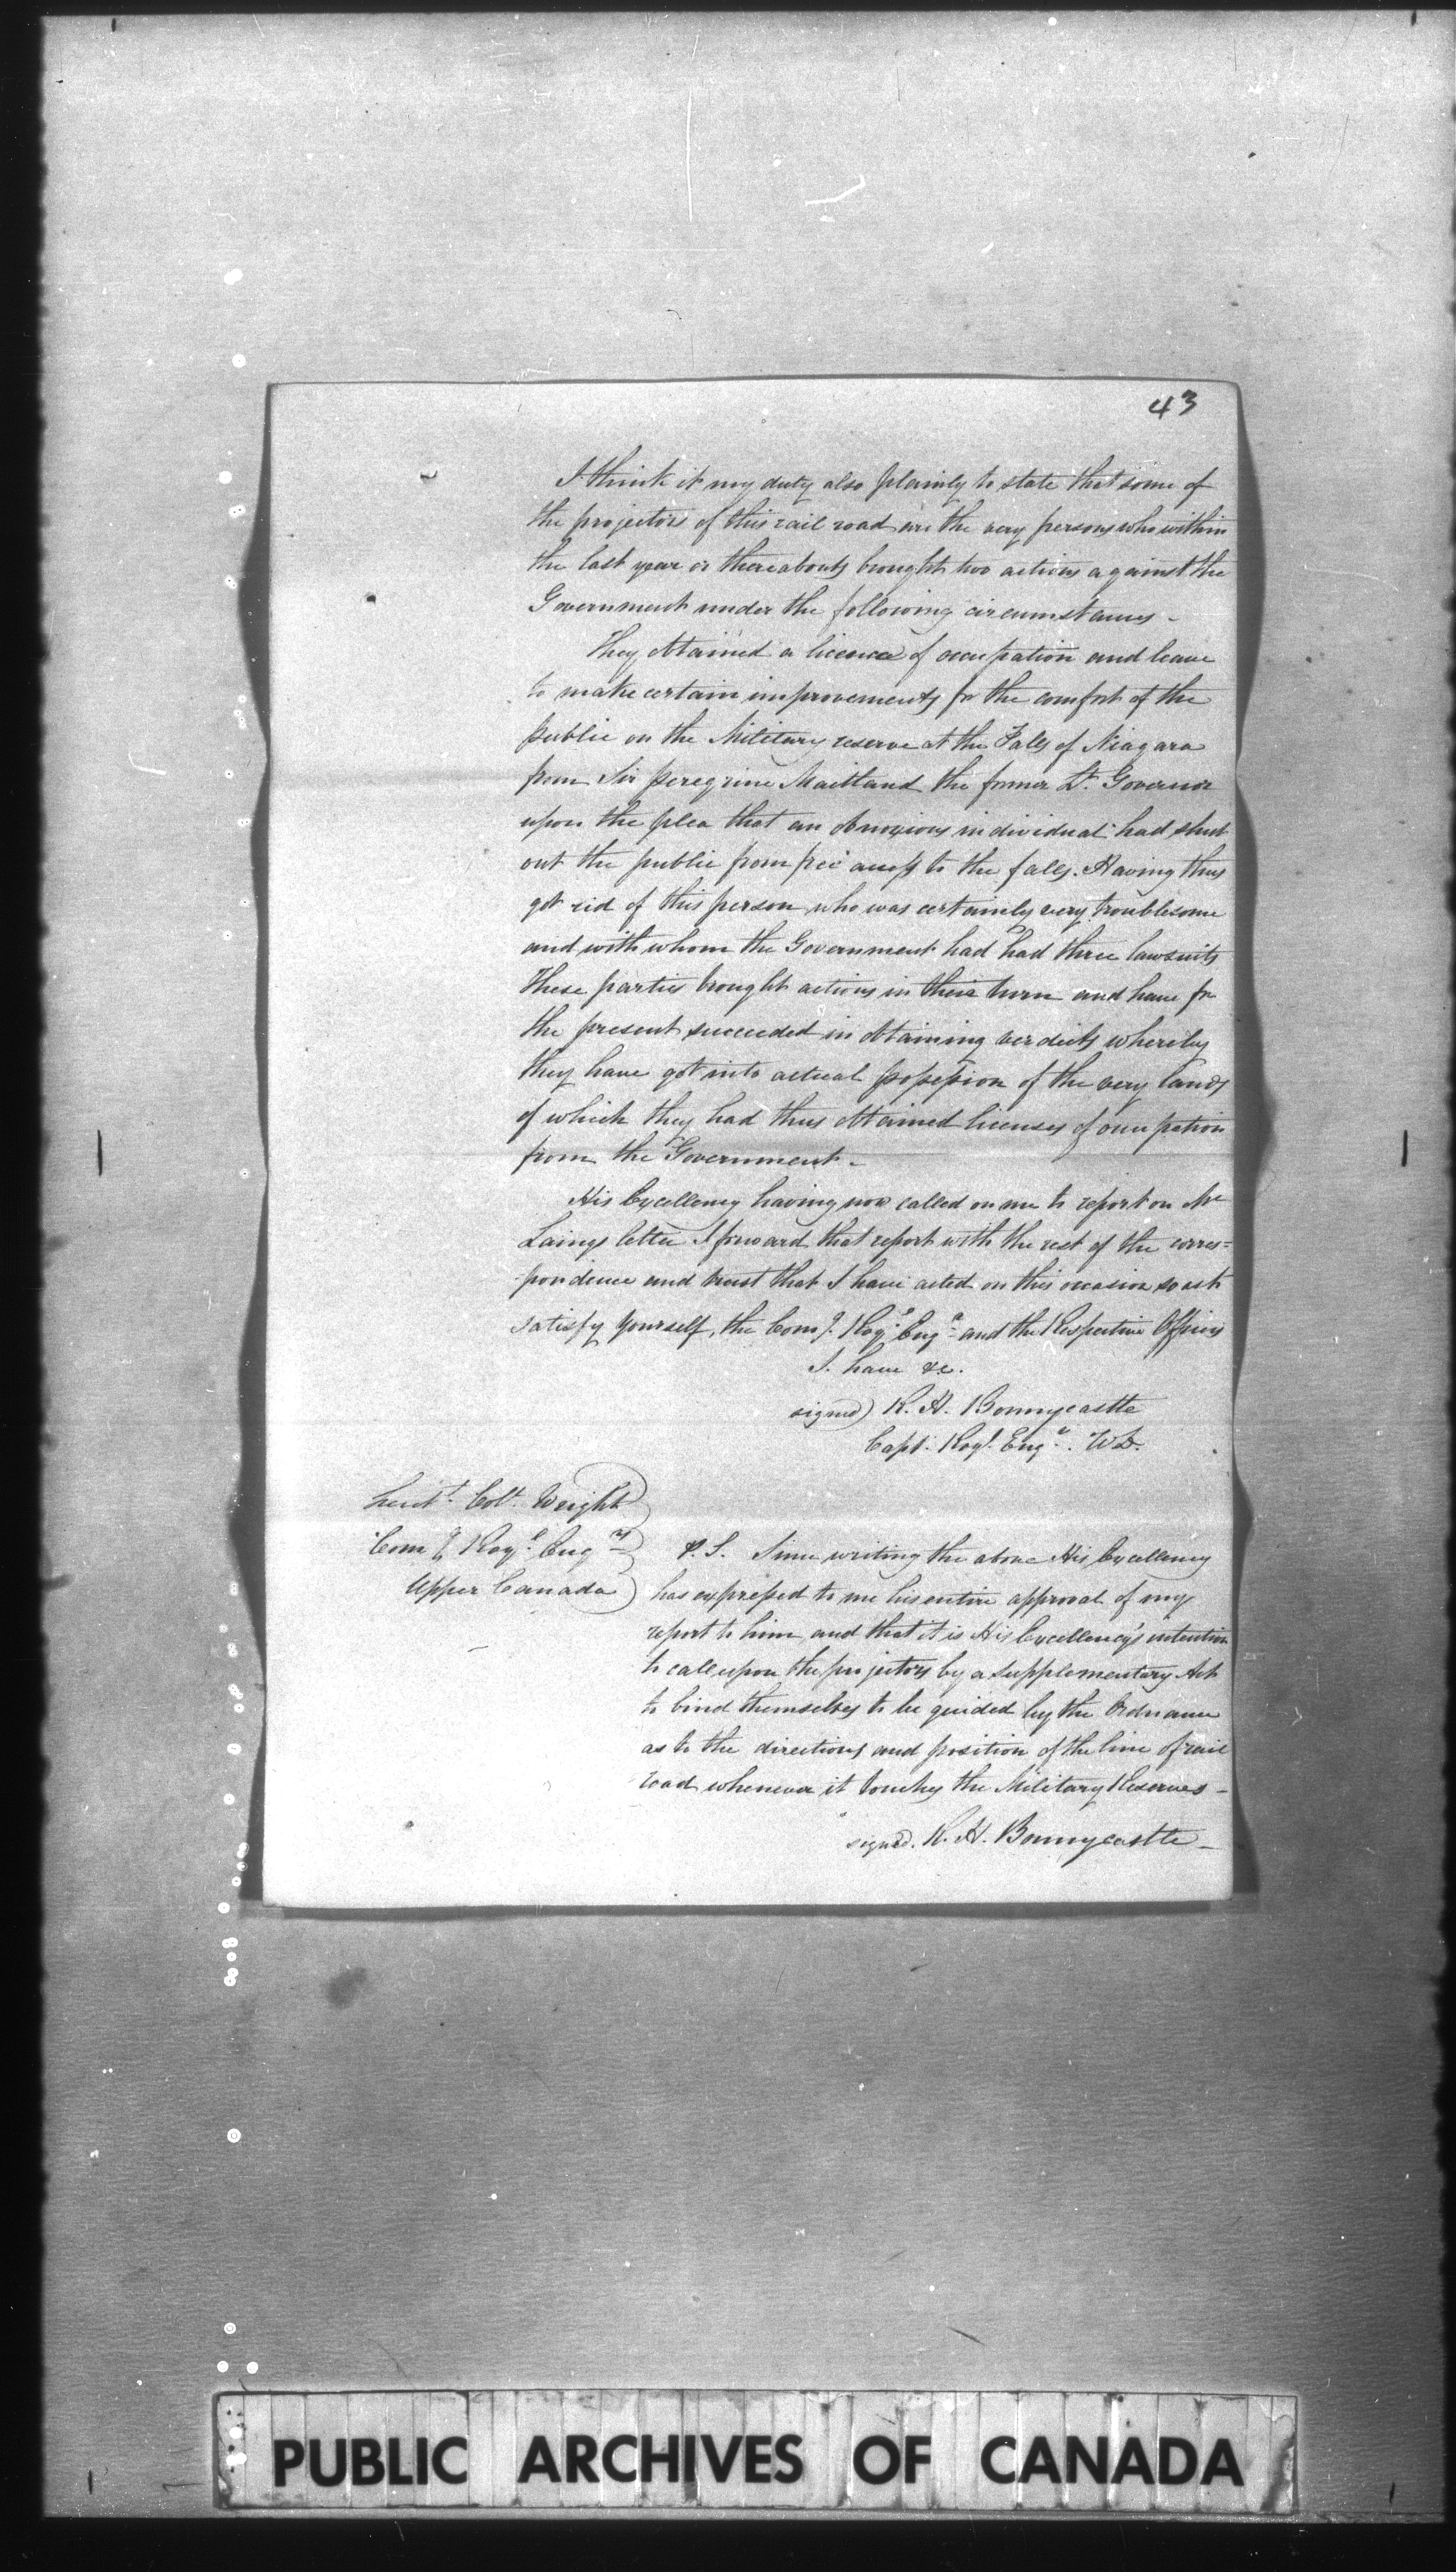 43
I think it my duty also plainly to state that some of
the projectors of this rail road are the very persons who within
the last year or thereabouts brought two actions against the
Government under the following circumstances -
They obtained a licence of occupation and leave
to make certain improvements for the comfort of the
public on the Military reserve at the Falls of Niagara
from Sir Peregrine Maitland the former Lt. Governor
upon the plea that an obnoxious individual had shut
out the public from free access to the falls. Having thus
got rid of this person who was certainly very troublesome
and with whom the Government had had three lawsuits
These parties brought actions in their turn and have for
the present succeeded in obtaining verdicts whereby
they have got into actual possession of the very lands
of which they had thus obtained licenses of occupation
from the Government -
His Excellency having now called on me to report on Mr
Laings letter I forward that report with the rest of the corres=
-pondence and trust that I have acted on this occasion so as to
satisfy yourself, the Comg. Royl. Engr. and the Respective Officers
I. have &c.
signed) R. H. Bonnycastle
Capt. Royl. Engr. W.D.
Lieut. Coll. Wright
Comg Royl. Engrs
Upper Canada
P.S. Since writing the above His Excellency
has expressed to me his entire approval of my
report to him, and that it is His Excellency's intention
to call upon the projectors by a supplementary Act
to bind themselves to be guided by the Ordnance
as to the directions and position of the line of rail
road whenever it touches the Military Reserves -
signed. R. H. Bonnycastle -
PUBLIC ARCHIVES OF CANADA